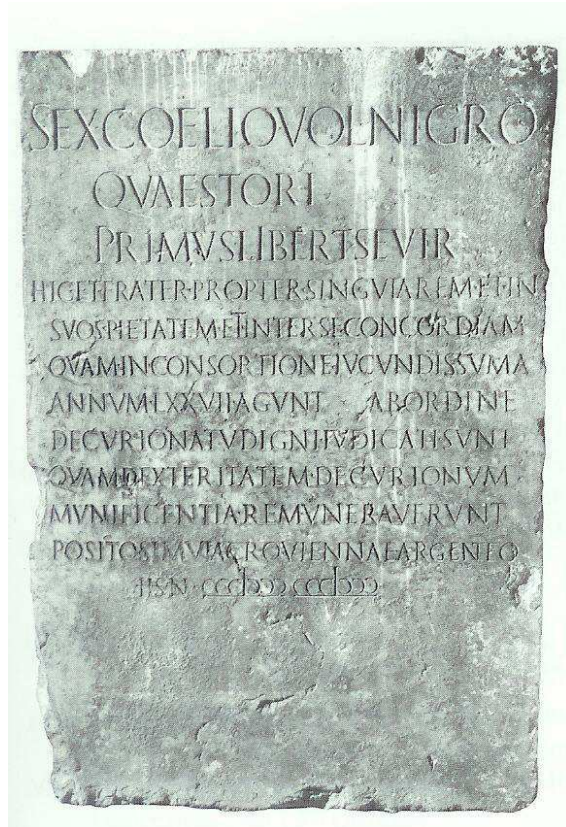 SEX COELIO VOL NIGRO
QVAESTORI
PRIMVS LIBERT SEVIR
HIC ET FRATER PROPTER SINGVLAREM ET IN
SVOS PIETATEM ET INTER SE CONCORDIAM
QVAM IN CONSORTIONE IVCVNDISSVMA
ANNVM LXXVII AGVNT AB ORDINE
DECVRIONATV DIGNI IVDICATI SVNT
QVAM DEXTERITATEM DECVRIONVM
MVNIFICENTIA REMVNERAVERVNT
POSITO SIMVLACRO VIENNAE ARGENTEO
HSN CCCIↃↃↃ CCCIↃↃↃ